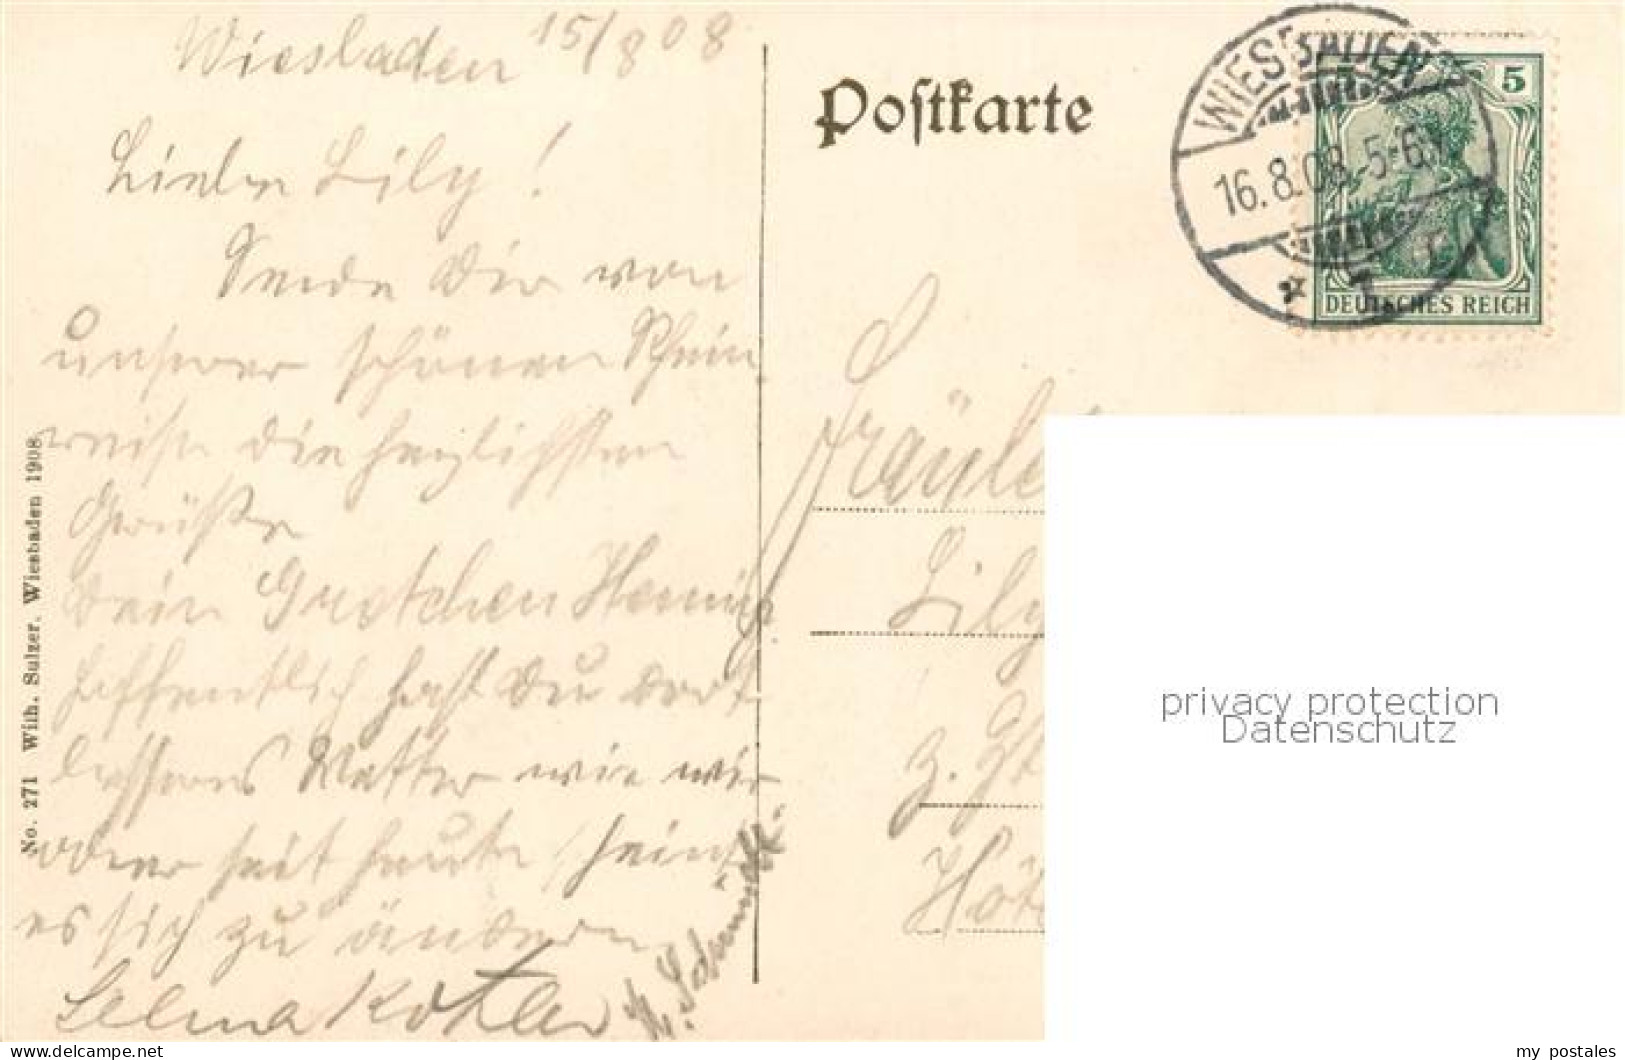 Wiesbaden 15/8 08
Lieber Lily!
Sende Dir von
unserer schönen Rhein
reise die herzlichsten
Grüße
Dein Gretchen Hennig
hoffentlich hast Du dort
besseres Wetter wie wir
oder seit heute scheint
es sich zu ändern
Selma Köhler
H. Schmidt.
No. 271 Wilh. Sulzer, Wiesbaden 1908
Postkarte
WIESBADEN
16.8.08. 5-6
* 1
5
DEUTSCHES REICH
Fräule
Lily
z. Zt
Hôt
privacy protection
Datenschutz
www.delcampe.net
my_postales